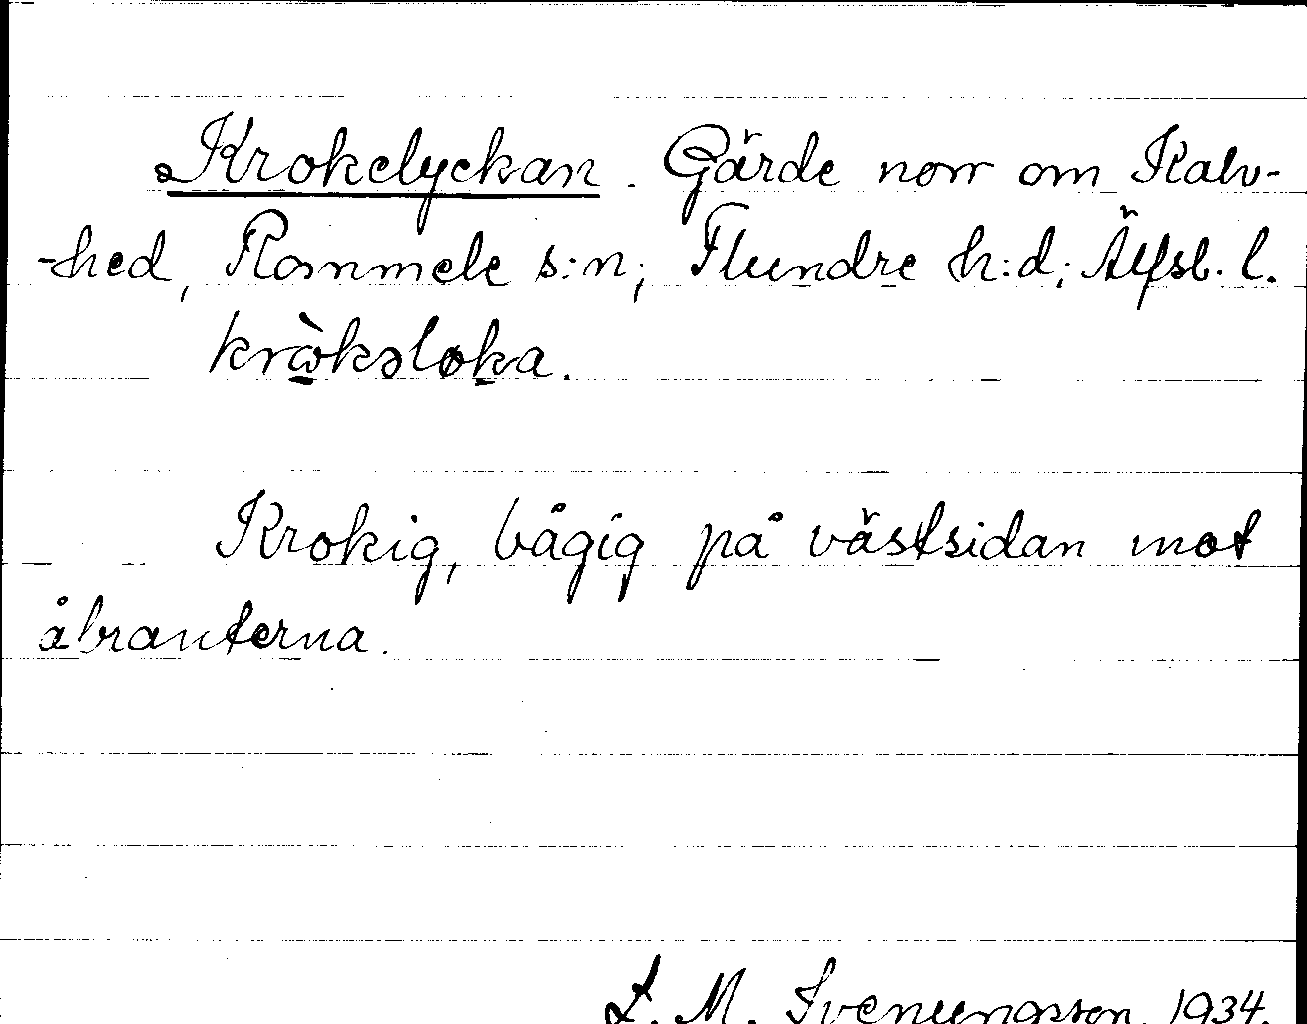 Krokelyckan. Gärde norr om Kalv-
-hed, Rommele s:n; Flundre h:d; Älfsb. l.
kròkəloka.
Krokig, bågig på västsidan mot
åbranterna.
L. M. Svenungsson. 1934.